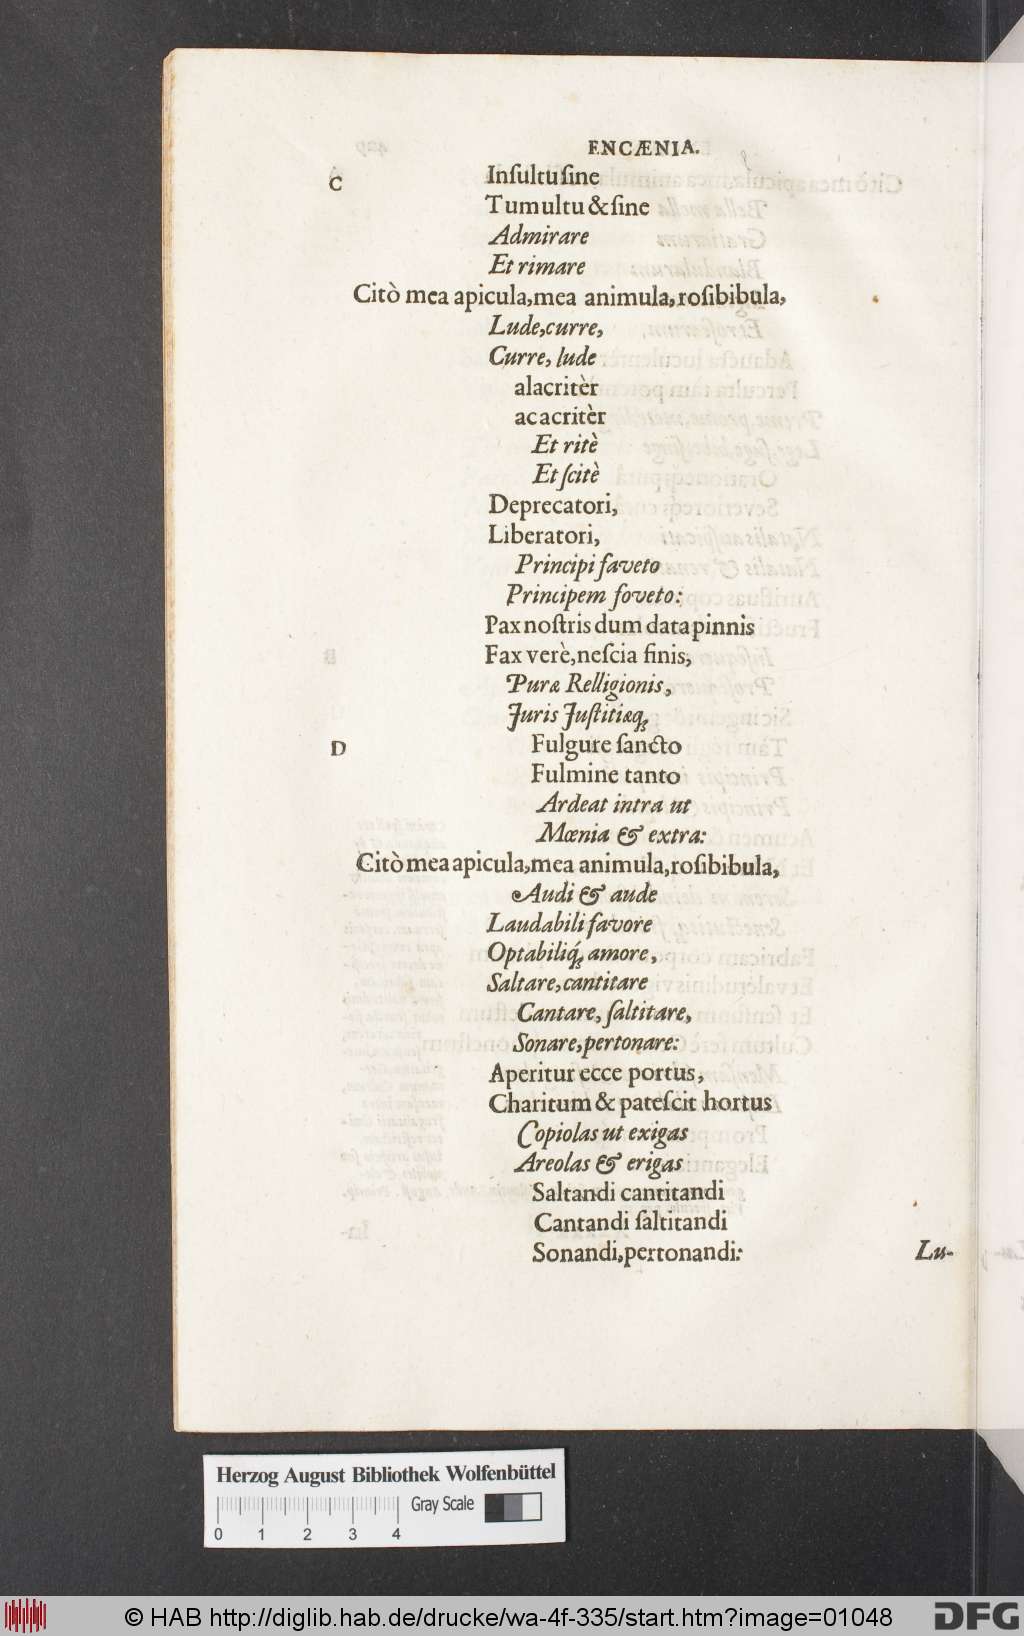 ENCÆNIA.
C
Inſultu ſine
Tumultu & ſine
Admirare
Et rimare
Citò mea apicula, mea animula, roſibibula,
Lude, curre,
Curre, lude
alacritèr
ac acritèr
Et ritè
Et ſcitè
Deprecatori,
Liberatori,
Principi faveto
Principem foveto:
Pax noſtris dum data pinnis
Fax verè, neſcia finis,
Puræ Relligionis,
Juris Juſtitiæq;
D
Fulgure ſancto
Fulmine tanto
Ardeat intra ut
Mœnia & extra:
Citò mea apicula, mea animula, roſibibula,
Audi & aude
Laudabili favore
Optabiliq́; amore,
Saltare, cantitare
Cantare, ſaltitare,
Sonare, pertonare:
Aperitur ecce portus,
Charitum & pateſcit hortus
Copiolas ut exigas
Areolas & erigas
Saltandi cantitandi
Cantandi ſaltitandi
Sonandi, pertonandi:
Lu-
Herzog August Bibliothek Wolfenbüttel
Gray Scale
0 1 2 3 4
© HAB http://diglib.hab.de/drucke/wa-4f-335/start.htm?image=01048
DFG